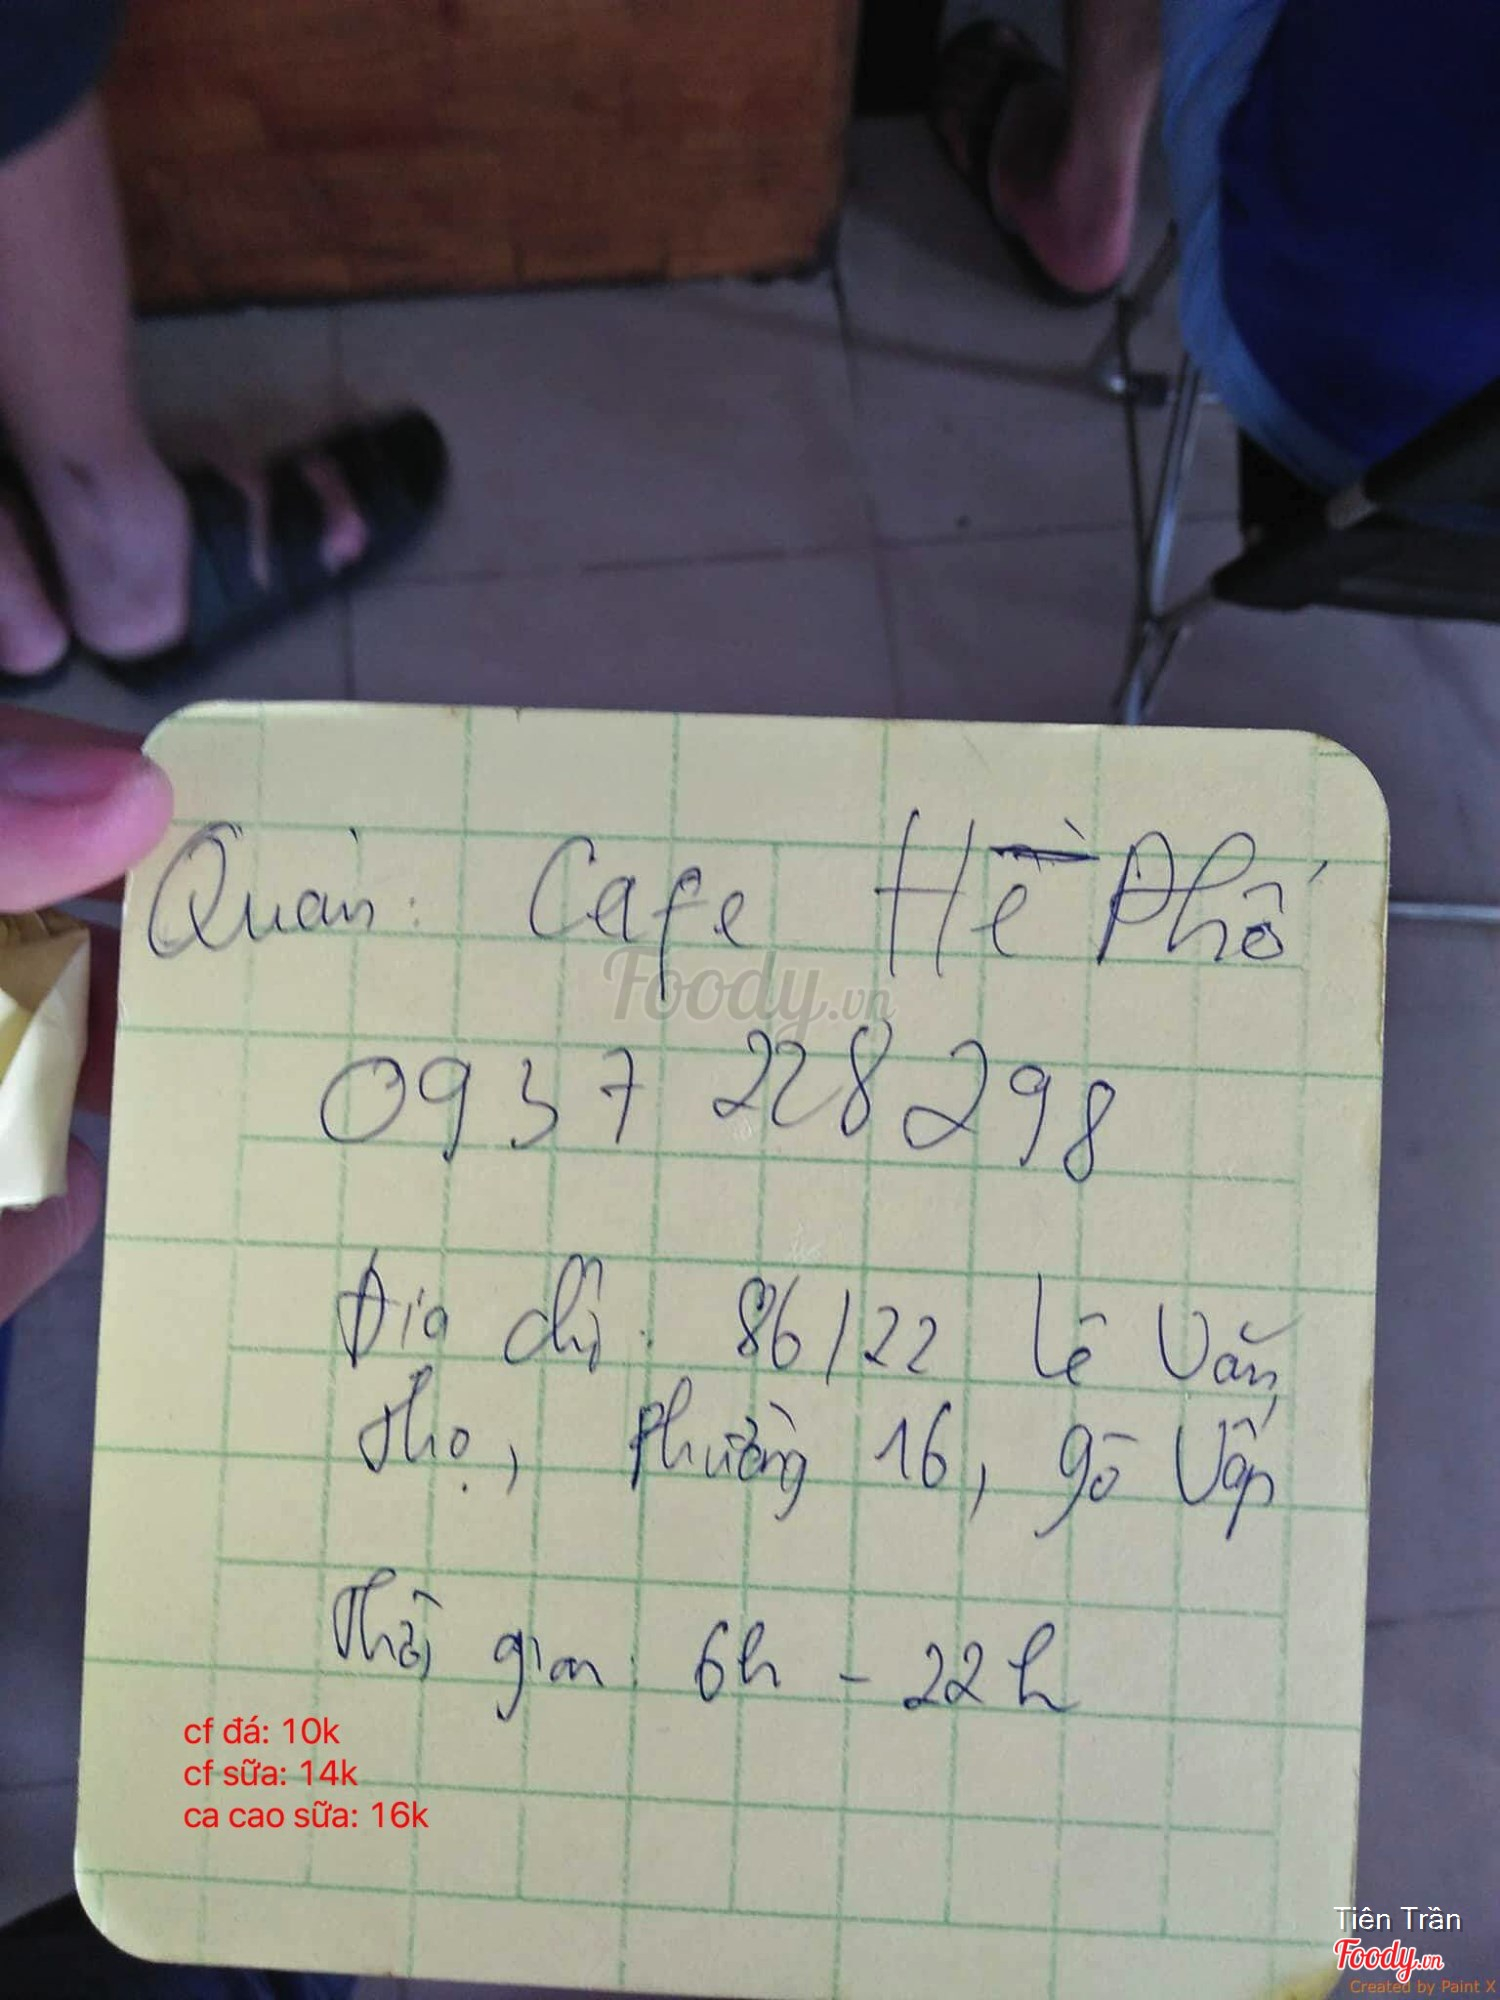 Quán: Cafe Hè Phố
Foody.vn
0937 228 298
Địa chỉ: 86/22 Lê Văn
Thọ, Phường 16, gò Vấp
Thời gian: 6h - 22h
cf đá: 10k
cf sữa: 14k
ca cao sữa: 16k
Tiên Trần
Foody.vn
Created by Paint X